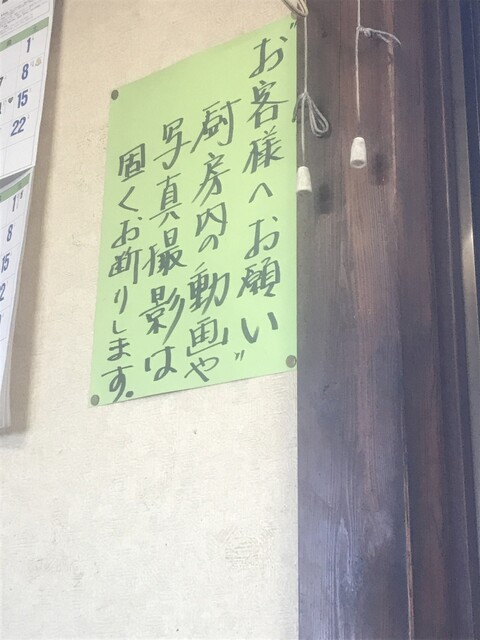 "お客様へお願い"
厨房内の動画や
写真撮影は
固く、お断りします。
1
8
15
22
1
8
15